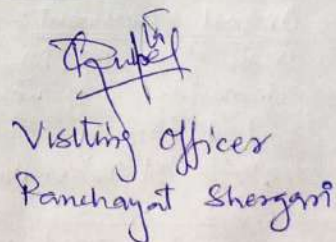 Visiting Officer
Panchayat Shergari